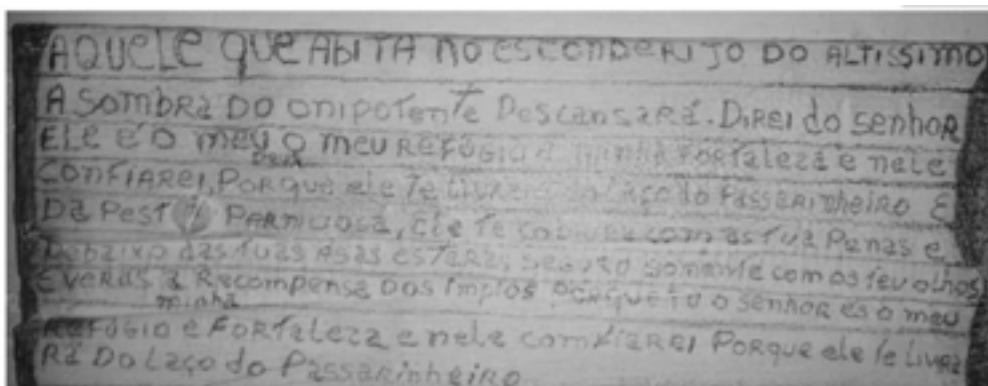 AQUELE QUE ABITA NO ESCONDERIJO DO ALTISSIMO
A SOMBRA DO ONIPOTENTE DESCANSARÁ. DIREI do SENHOR
ELE É O meu O meu REFÚGIO a minha FORTALEZA e nele
Deus
CONFIAREI, PORQUE ele te LIVRARÁ do Laço do Passarinheiro E
Da Peste PARNICIOSA, Ele te cobrira com as tua Penas e
Debaixo das tuas Asas estaras seguro somente com os teu olhos
E verás a Recompensa DOS Impios PORQUE tu o senhor es o meu
minha
REFÚGIO e FORTALEZA e nele comfiarei PORQUE ele te LIVRA
RÁ Do Laço do Passarinheiro